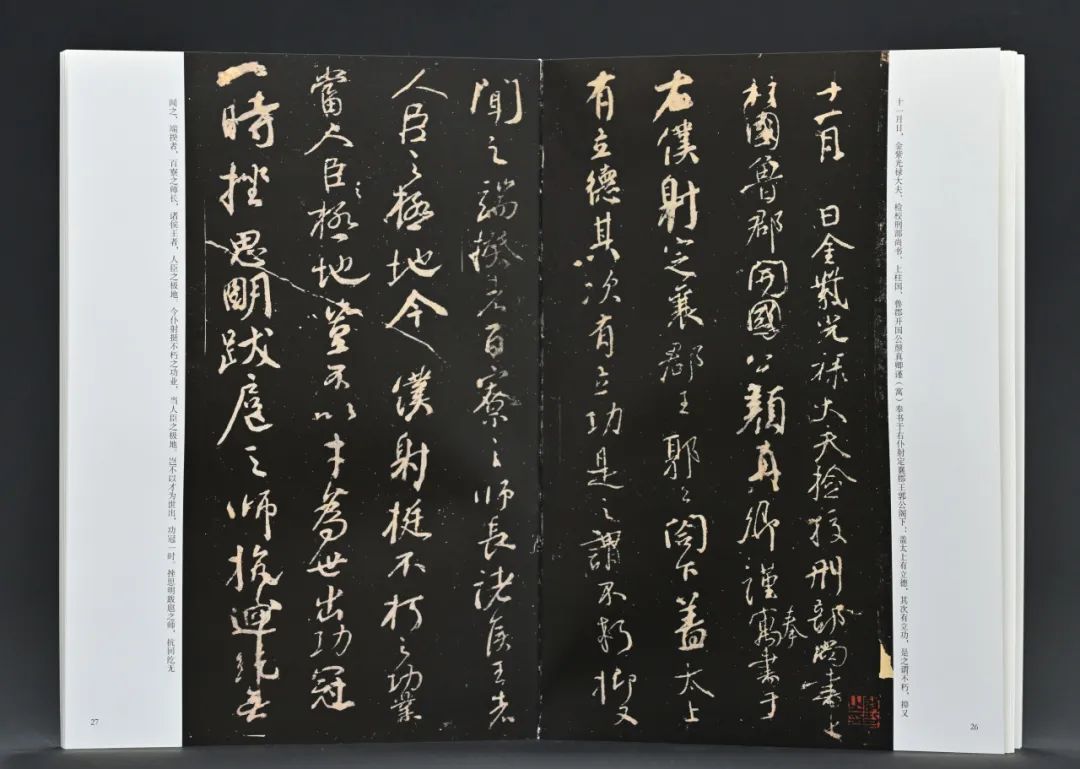 十一月日金紫光禄大夫检校刑部尚书上柱国、鲁郡开国公颜真卿谨（寓）奉书于右仆射定襄郡王郭公阁下：盖太上有立德，其次有立功，是之谓不朽，抑又
十一月　日金紫光祿大夫檢校刑部尚書上
柱國魯郡開國公顏真卿謹寓奉書于
右僕射定襄郡王郭公閤下蓋太上
有立德其次有立功是之謂不朽抑又
26
聞之端揆者百寮之師長諸侯王者
人臣之極地今僕射挺不朽之功業
當人臣之極地豈不以才為世出功冠
一時挫思明跋扈之師抗迴紇無
闻之，端揆者，百寮之师长，诸侯王者，人臣之极地，今仆射挺不朽之功业，当人臣之极地，岂不以才为世出，功冠一时，挫思明跋扈之师，抗回纥无
27